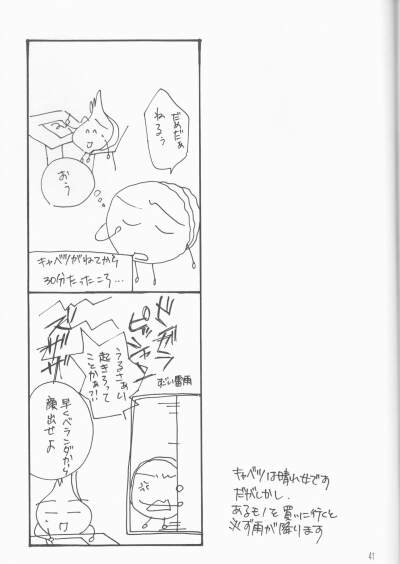 だめだぁ
ねるぅ
おう
キャベツがねてから
30分たったころ…
うるさぁい
起きろって
ことかぁ?!
すごい雷雨
早くベランダから
顔出せよ
キャベツは晴れ女です
だがしかし、
あるモノを買いに行くと
必ず雨が降ります
41